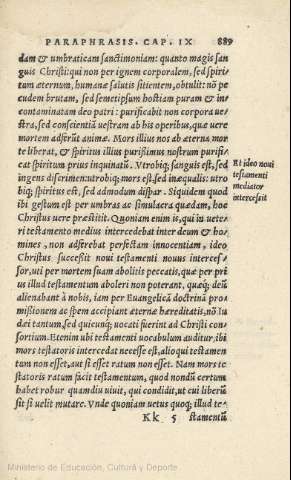 PARAPHRASIS. CAP. IX 889
dam & umbraticam sanctimoniam: quanto magis san
guis Christi: qui non per ignem corporalem, sed spiri-
tum æternum, humanæ salutis sitientem, obtulit: nō pe
cudem brutam, sed semetipsum hostiam puram & in-
contaminatam deo patri: purificabit non corpora ue-
stra, sed conscientiā uestram ab his operibus, quæ uere
mortem adferūt animæ. Mors illius nos ab æterna mor
te liberat, & spiritus illius purissimus nostrum purifi-
cat spiritum prius inquinatū. Utrobiq; sanguis est, sed
ingens discrimen: utrobiq; mors est, sed inæqualis: utro
biq; spiritus est, sed admodum dispar. Siquidem quod
ibi gestum est per umbras ac simulacra quædam, hoc
Christus uere præstitit. Quoniam enim is, qui in uete-
ri testamento medius intercedebat inter deum & ho-
mines, non adferebat perfectam innocentiam, ideo
Christus successit noui testamenti nouus interces-
sor, uti per mortem suam abolitis peccatis, quæ per pri
us illud testamentum aboleri non poterant, quæq́; deū
alienabant à nobis, iam per Euangelicā doctrinā pro-
missionem ac spem accipiant æternæ hæreditatis, nō Iu
dæi tantum, sed quicunq; uocati fuerint ad Christi con-
sortium. Etenim ubi testamenti uocabulum auditur, ibi
mors testatoris intercedat necesse est, alioqui testamen-
tum non esset, aut si esset ratum non esset. Nam mors te
statoris ratum facit testamentum, quod nondū certum
habet robur quamdiu uiuit, qui condidit, ut cui liberū
sit si uelit mutare. Vnde quoniam uetus quoq; illud te-
Kk 5 stamentū
Et ideo noui
testamenti
mediator
intercessit
Ministerio de Educación, Cultura y Deporte